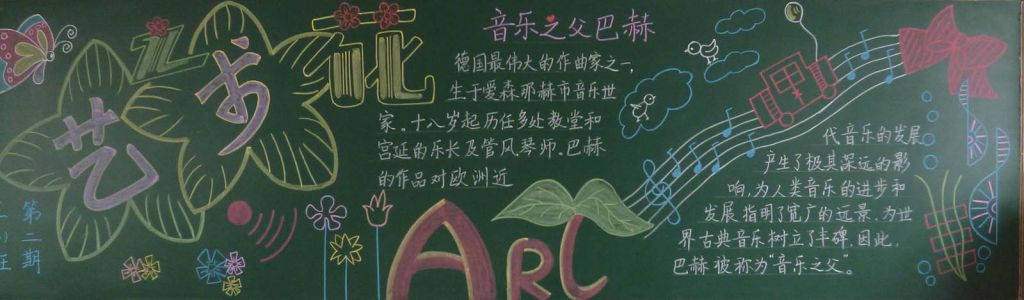 艺术
音乐之父巴赫
德国最伟大的作曲家之一,
生于爱森那赫市音乐世
家。十八岁起历任多处教堂和
宫延的乐长及管风琴师。巴赫
的作品对欧洲近
代音乐的发展
产生了极其深远的影
响,为人类音乐的进步和
发展指明了宽广的远景,为世
界古典音乐树立了丰碑,因此,
巴赫被称为“音乐之父”。
ART
第二期